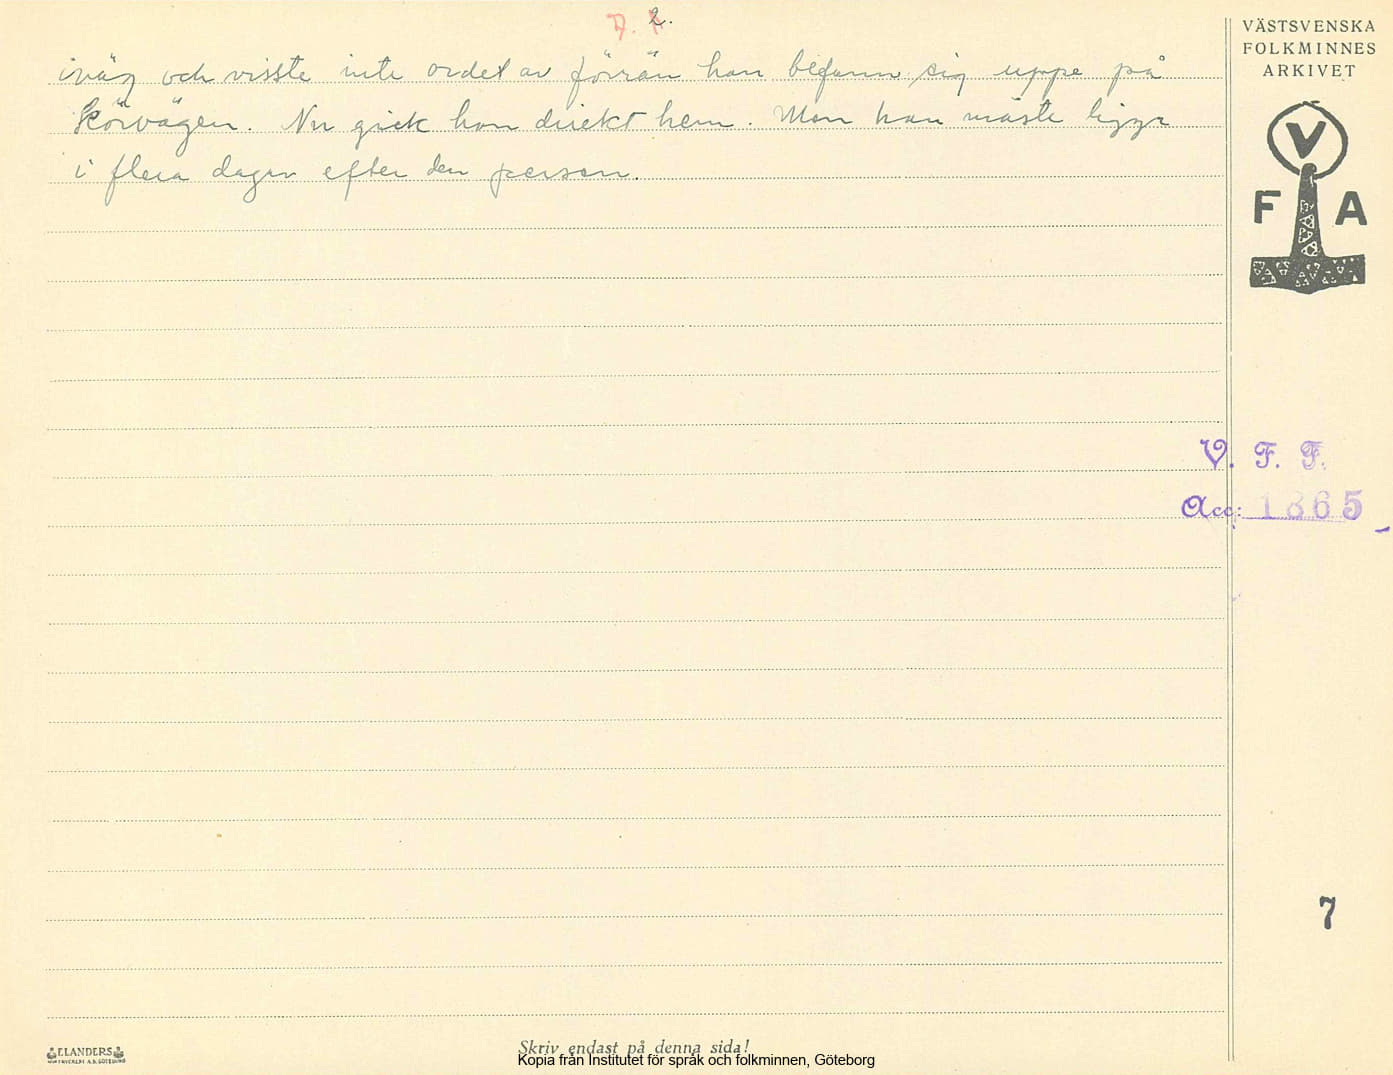 2.
iväg och visste inte ordet av förrän han befann sig uppe på
körvägen. Nu gick han direkt hem. Men han måste ligga
i flera dagar efter den färden.
VÄSTSVENSKA
FOLKMINNES
ARKIVET
V
F A
V. F. F.
Acc: 1865
7
ELANDERS
Skriv endast på denna sida!
Kopia från Institutet för språk och folkminnen, Göteborg